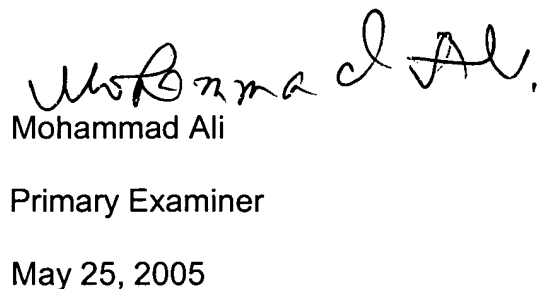 Mohammad Ali.
Mohammad Ali
Primary Examiner
May 25, 2005